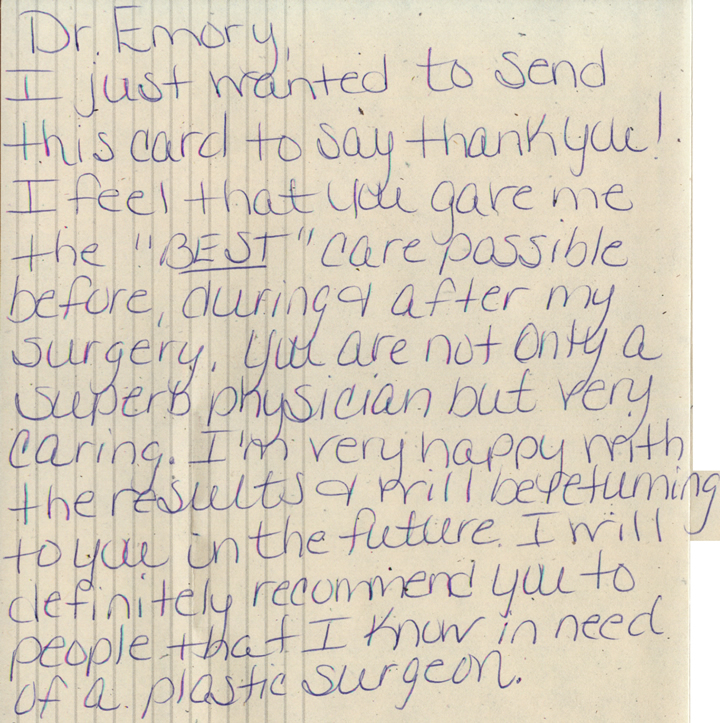 Dr. Emory,
I just wanted to send
this card to say thank you!
I feel that you gave me
the "BEST" care possible
before, during & after my
surgery. You are not only a
superb physician but very
caring. I'm very happy with
the results & will be returning
to you in the future. I will
definitely recommend you to
people that I know in need
of a plastic surgeon.